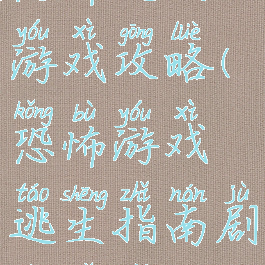 yóu xì gōng lüè
游戏攻略(
kǒng bù yóu xì
恐怖游戏
táo shēng zhǐ nán jù
逃生指南剧